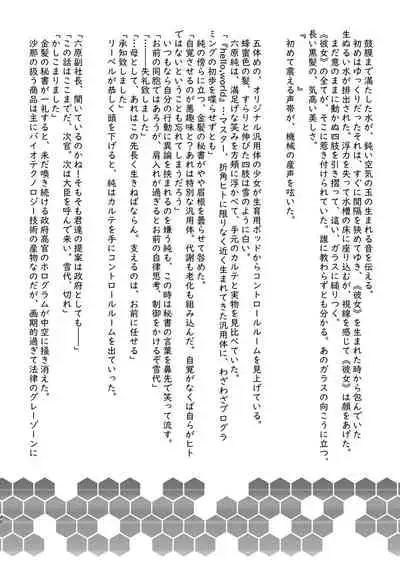 鼓膜まで満たした水が、鈍い空気の玉の生まれる音を伝える。
初めはゆっくりだったそれは、すぐに間隔を狭めてゆき、《彼女》を生まれた時から包んでいた
生ぬるい水が排出された。浮力を失って水槽の床に座り込むが、視線を感じて《彼女》は顔をあげた。
まだ意のままに動かぬ四肢を引き摺って、這い、ガラスに縋りつく。
《彼女》の全てが、そこに惹き付けられていた。誰に教わらずとも分かる。あのガラスの向こうに立つ、
長い黒髪の、気高い美しさ。
初めて震える声帯が、機械の産声を呟いた。
『　　　　　　声』
五体めの、オリジナル汎用体の少女が生育用ポッドからコントロールルームを見上げている。
蜂蜜色の髪、すらりと伸びた四肢は雪のように白い。
六原純は、満足げな笑みを方頬に浮かべて、手元のカルテと実物を見比べていた。
「『hello,world』――マスター、折角ヒトに限りなく近く生まれてきた汎用体に、わざわざプログラ
ミングの初歩を喋らせずとも」
純の傍らに立つ、金髪の秘書がやや眉根を曇らせて咎めた。
「自覚させるのが悪趣味と？あれは特別な汎用体。代謝も老化も組み込んだ。自覚がなくば自らがヒト
ではないということも忘れてしまうだろう」
いつもなら自分の行動に異論を挟まれるのを嫌う純も、この時は秘書の言葉を鼻先で笑って流す。
「お前の同胞ではあろうが、肩入れが過ぎるとお前の自律思考、制御をかけるぞ雪代」
「……失礼致しました」
「…母として、あれはこの先長く生きねばならん。支えるのは、お前に任せる」
「承知致しました」
リーベルが恭しく頭を下げると、純はカルテを手にコントロールルームを出ていった。
「六原副社長、聞いているのかね！そもそも君達の提案は政府としても――」
「この話はここまでだ、次官。次は大臣を呼んで来い。雪代、切れ」
「かしこまりました」
純の金髪の秘書が一礼すると、未だ喚き続ける政府高官のホログラムが中空に掻き消えた。
沙那の扱う商品は主にバイオテクノロジー技術の産物なのだが、画期的過ぎて法律のグレーゾーンに